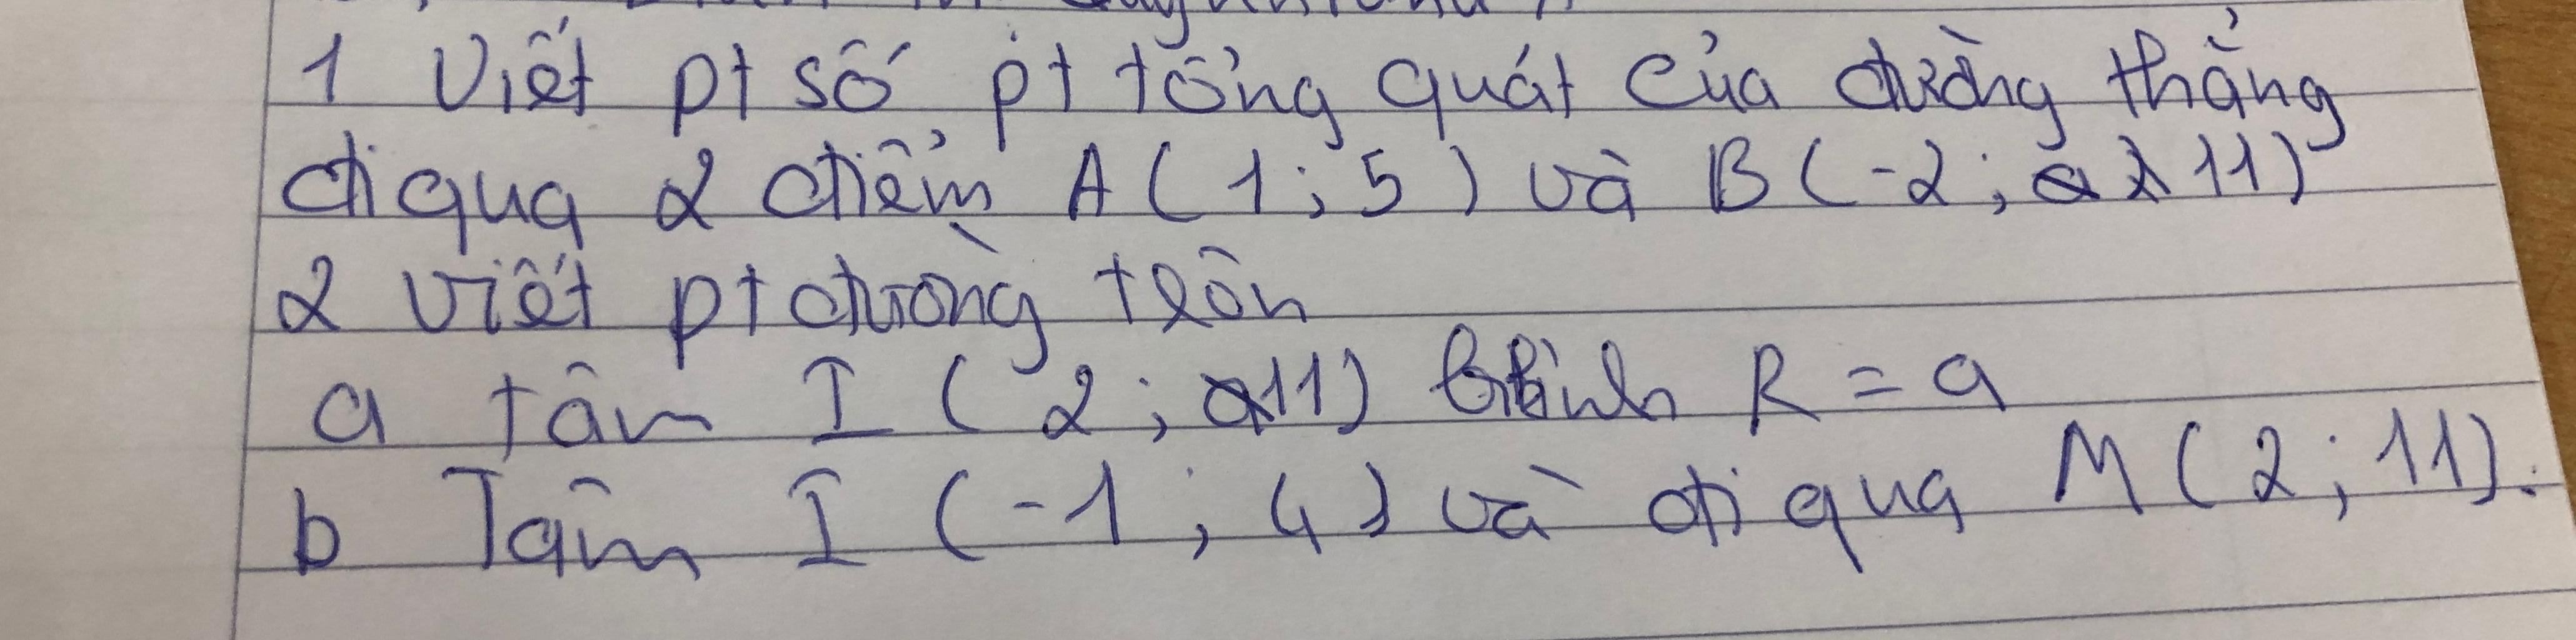 1 Viết pt số pt tổng quát của đường thẳng
đi qua 2 điểm A (1; 5) và B (-2; 11)
2 viết pt đường tròn
a tâm I (2; 11) bkính R = 9
b Tâm I (-1; 4) và đi qua M (2; 11).